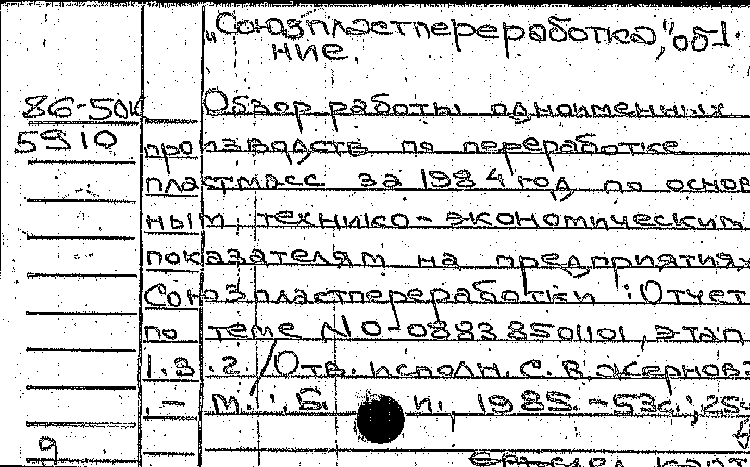 „Союзпластпереработка,“ об-1.
ние.
86-50к Обзор работы одноименных
5910 производств по переработке
пластмасс за 1984 год по основ
ным технико-экономическим
показателям на предприятиях
Союзпластпереработки : Отчет
по теме №0-0883850101, этап
1.3.2. / Отв. исполн. С.В. Жернов
.- М. : Б. и., 1985. - 53с.;
9